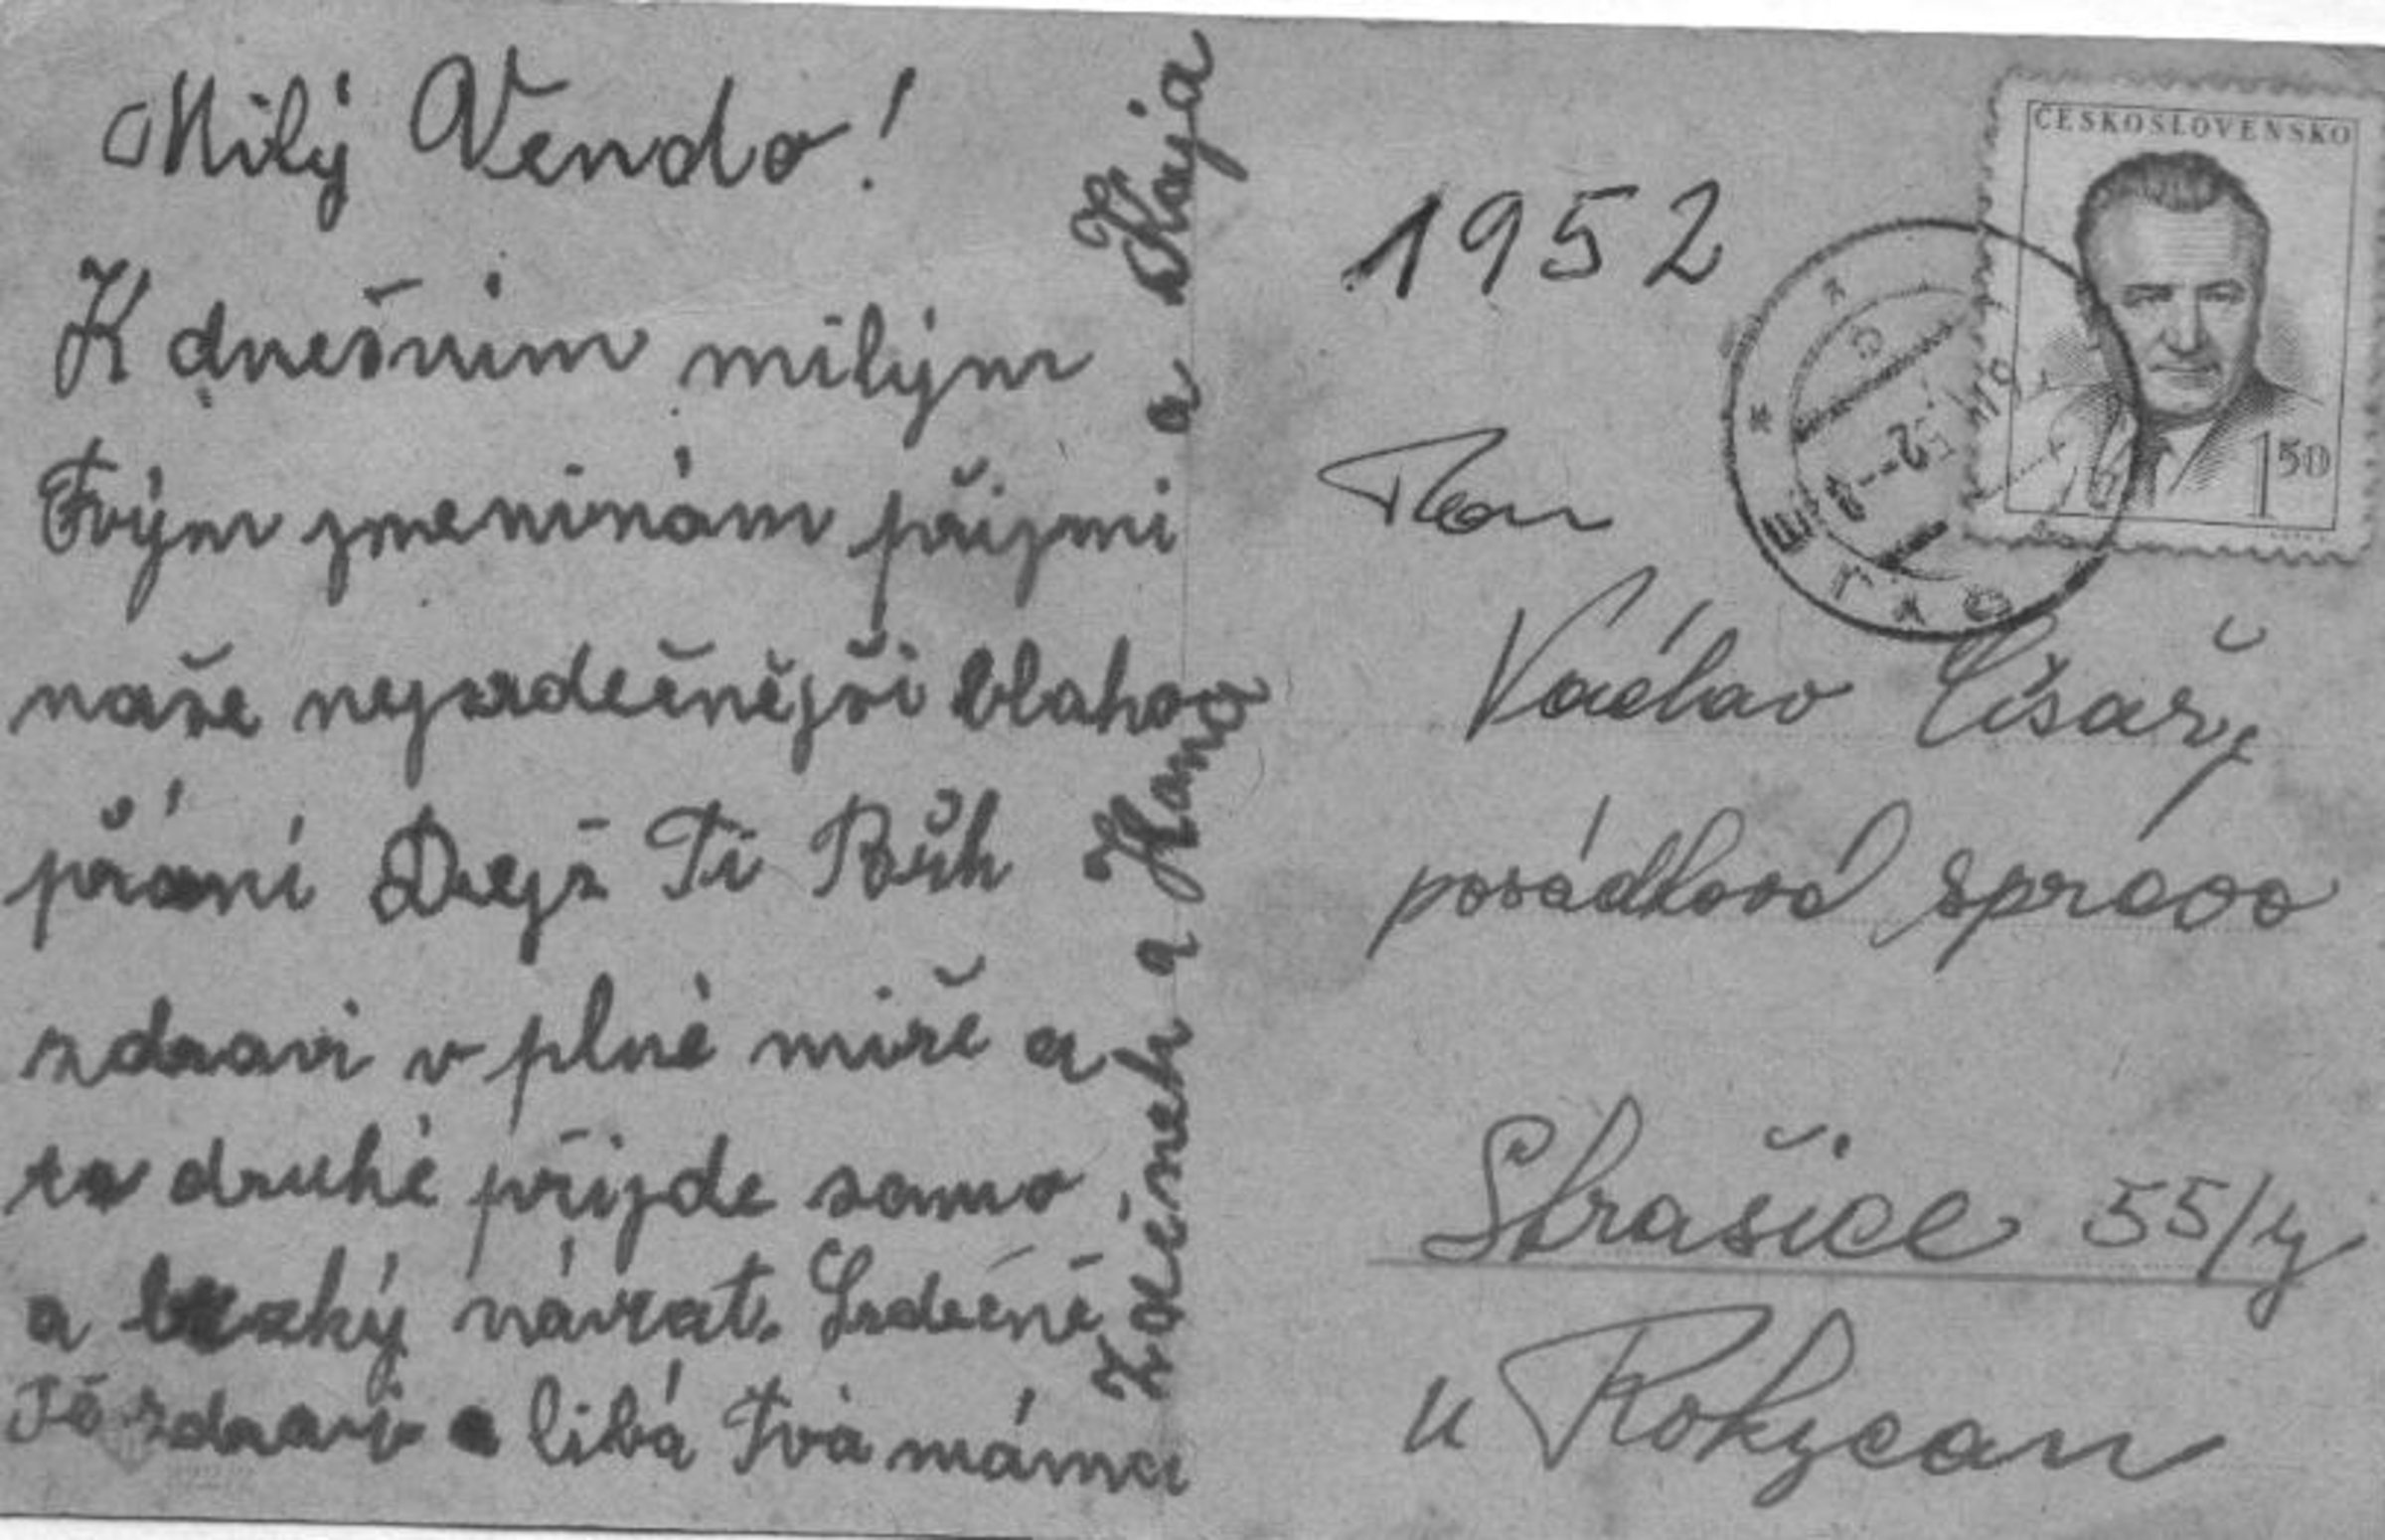 Milý Vendo!
K dnešním milým
Tvým jmeninám přijmi
naše nejsrdečnější blahoo
přání Dejž Ti Bůh
zdraví v plné míře a
to druhé přijde samo
a brzký návrat. Srdečně
Tě zdraví a líbá Tvá máma
Zdeněk a Hana
a Kája
1952
ČESKOSLOVENSKO
1 50
Pan
Václav Císař,
posádková správa
Strašice 55/y
u Rokycan